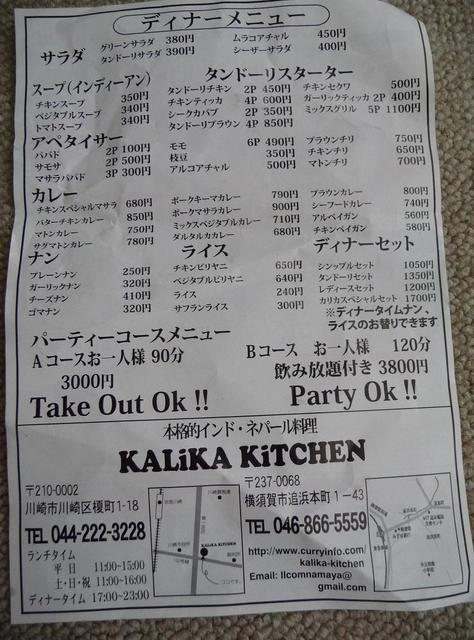 ディナーメニュー
サラダ グリーンサラダ 380円 ムラコアチャル 450円
タンドーリサラダ 390円 シーザーサラダ 400円
スープ(インディーアン) タンドーリスターター
チキンスープ 350円 タンドーリチキン 2P 450円 チキンセクワ 500円
ベジタブルスープ 340円 チキンティッカ 4P 600円 ガーリックティッカ 2P 400円
トマトスープ 340円 シークカバブ 2P 350円 ミックスグリル 5P 1100円
タンドーリプラウン 4P 850円
アペタイサー
パパド 2P 100円 モモ 6P 490円 プラウンチリ 750円
サモサ 2P 500円 枝豆 350円 チキンチリ 650円
マサラパパド 3P 300円 アルコアチャル 500円 マトンチリ 700円
カレー
チキンスペシャルマサラ 680円 ポークキーマカレー 790円 プラウンカレー 800円
バターチキンカレー 850円 ポークマサラカレー 900円 シーフードカレー 740円
マトンカレー 750円 ミックスベジタブルカレー 710円 アルベイガン 560円
サグマトンカレー 780円 ダルタルカカレー 680円 チキンベイガン 580円
ナン ライス ディナーセット
プレーンナン 250円 チキンビリヤニ 650円 シンップルセット 1050円
ガーリックナン 320円 ベジタブルビリヤニ 640円 タンドーリセット 1350円
チーズナン 410円 ライス 240円 レディースセット 1200円
ゴマナン 320円 サフランライス 300円 カリカスペシャルセット 1700円
※ディナータイムナン、
ライスのお替りできます
パーティーコースメニュー
Aコースお一人様 90分 Bコース お一人様 120分
3000円 飲み放題付き 3800円
Take Out Ok !! Party Ok !!
本格的インド・ネパール料理
KALiKA KiTCHEN
〒210-0002
川崎市川崎区榎町1-18
TEL 044-222-3228
ランチタイム
平 日 11:00~15:00
土・日・祝 11:00~16:00
ディナータイム 17:00~23:00
KALIKA KITCHEN
ココです。
〒237-0068
横須賀市追浜本町1-43
TEL 046-866-5559
http://www.curryinfo.com/
kalika-kitchen
Email: llcomnamaya@
gmail.com